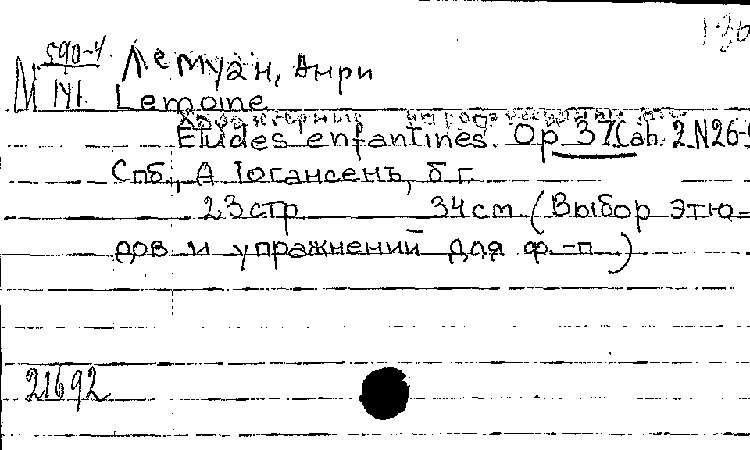 М 590-4 Лемуан, Анри
141 Lemoine
Etudes enfantines. Op 37 Cah. 2 N26-
Спб., А Iогансенъ, б г.
23 стр 34 см (Выбор этю-
дов и упражнений для ф.-п.)
21692